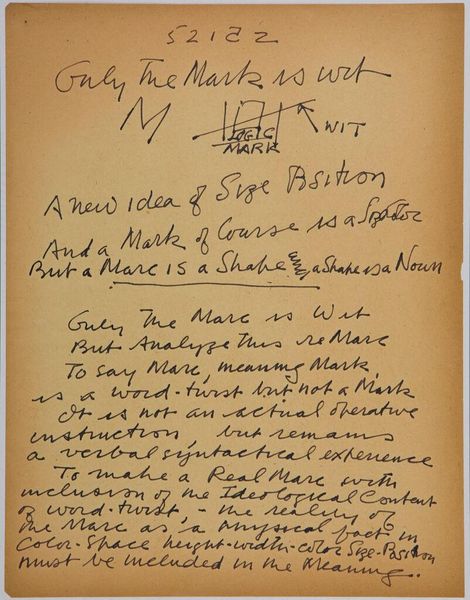 52122
Only The Mark is wit
M
WIT
LOGIC
MARK
A new idea of Size Position
And a Mark of Course is a
But a Marc is a Shape a Shape is a Noun
Only The Marc is Wit
But Analyze This re Marc
To say Marc, meaning Mark,
is a word-twist but not a Mark
It is not an actual operative
instruction, but remains
a verbal syntactical experience
To make a Real Marc with
inclusion of the Ideological Content
of word-twist - the reality of
the Marc as a physical fact in
Color-Space height-width-color Size-Position
must be included in the Meaning.